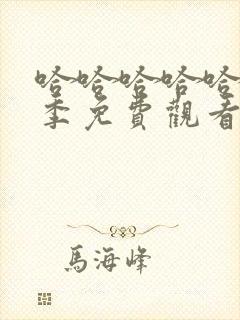 哈哈哈哈哈
季免費觀看
馬海峰